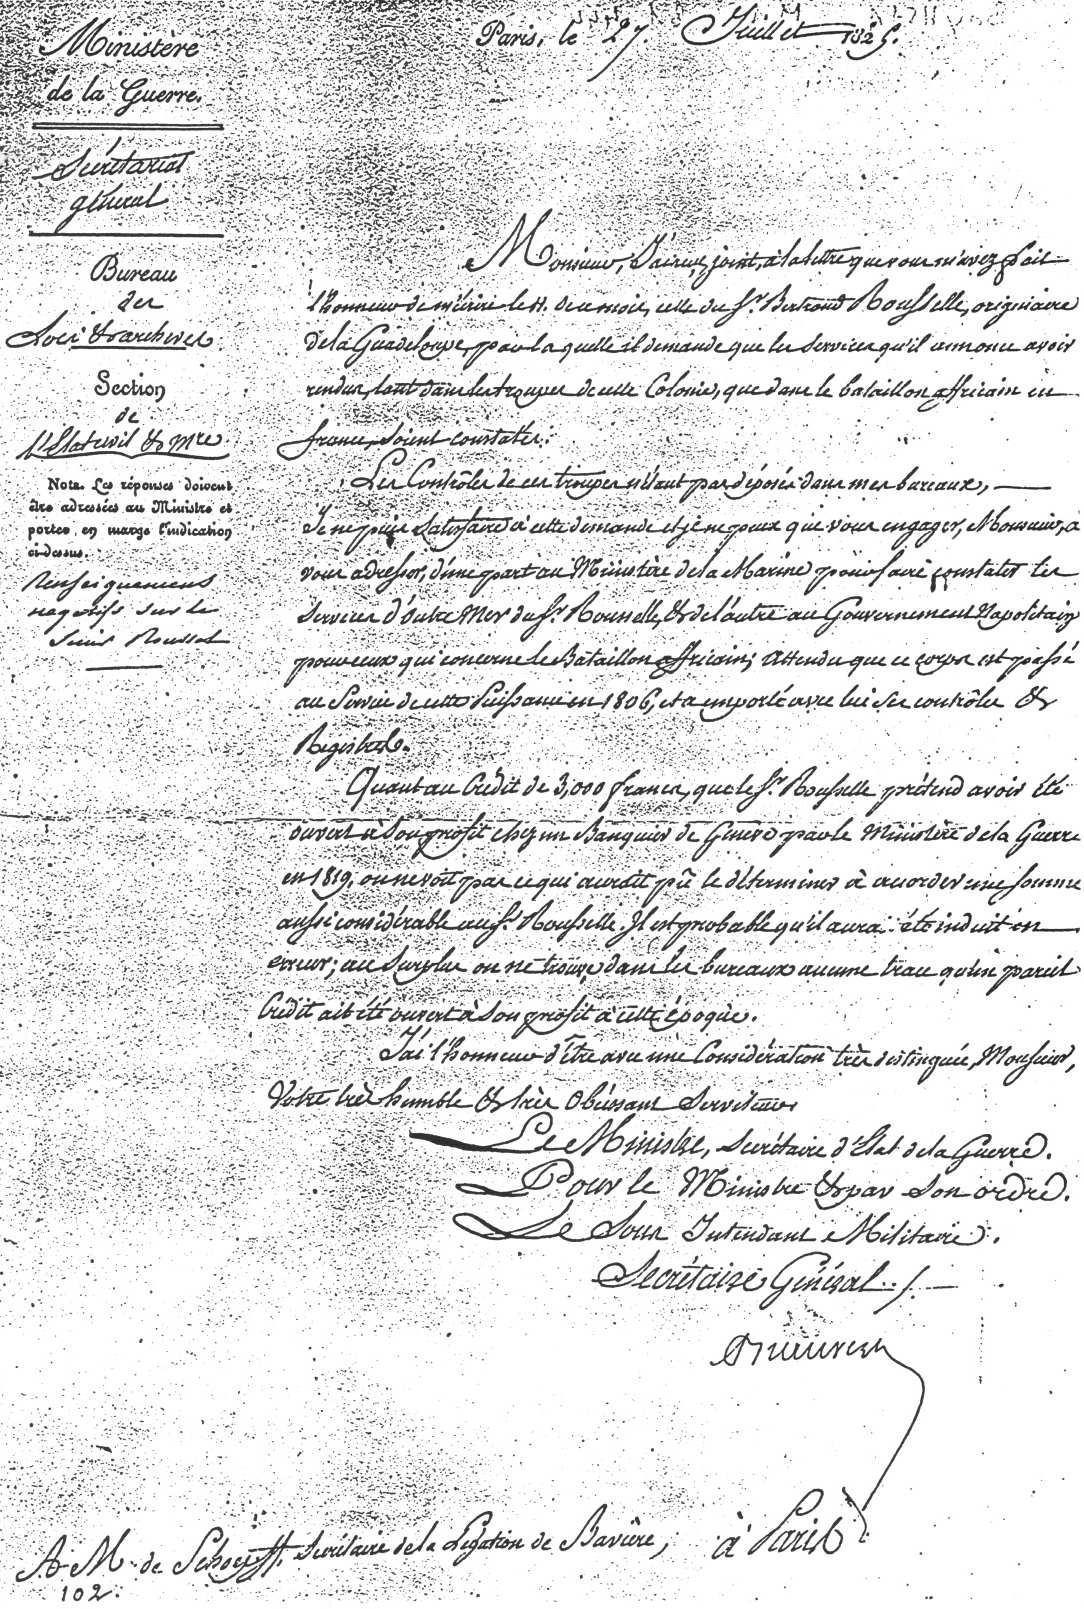 Ministère
de la Guerre.
Secrétariat
général
Bureau
des
Lois & archives
Section
de
l'Etat civil & mre
Nota. Les réponses doivent
être adressées au Ministre et
porter en marge l'indication
ci-dessus.
Renseignemens
negatifs sur le
Sieur Roussel
Paris, le 27. Juillet 1825.
Monsieur, J'ai reçu, joint, à la lettre que vous m'avez fait
l'honneur de m'écrire le 11. de ce mois, celle du Sr. Bertrand Rousselle, originaire
de la Guadeloupe, par laquelle il demande que les services qu'il annonce avoir
rendus, tant dans les troupes de cette Colonie, que dans le bataillon africain en
france, soient constatés.
Les Contrôles de ces troupes n'étant pas déposés dans mes bureaux,
Je ne puis satisfaire à cette demande et je ne peux que vous engager, Monsieur, à
vous adresser, d'une part au Ministère de la Marine pour faire constater les
services d'Outre Mer du Sr. Rousselle, & de l'autre au Gouvernement Napolitain
pour ceux qui concerne le Bataillon africain; attendu que ce corps est passé
au Service de cette Puissance en 1806, et a emporté avec lui ses contrôles &
Registres.
Quant au Crédit de 3,000 francs, que le Sr. Rousselle prétend avoir été
ouvert à son profit chez un Banquier de par le Ministère de la Guerre
en 1819, on ne voit pas ce qui aurait pû le déterminer à accorder une somme
aussi considérable au Sr. Rousselle. Il est probable qu'il aura été induit en
erreur; au surplus on ne trouve dans les bureaux aucune trace qu'un pareil
Crédit ait été ouvert à son profit à cette époque.
J'ai l'honneur d'être avec une Considération très distinguée, Monsieur,
Votre très humble & très Obéissant Serviteur
Le Ministre, Secrétaire d'Etat de la Guerre.
Pour le Ministre & par son ordre.
Le Sous Intendant Militaire.
Secrétaire Général
A M. de Secrétaire de la Légation de Bavière, à Paris
102.